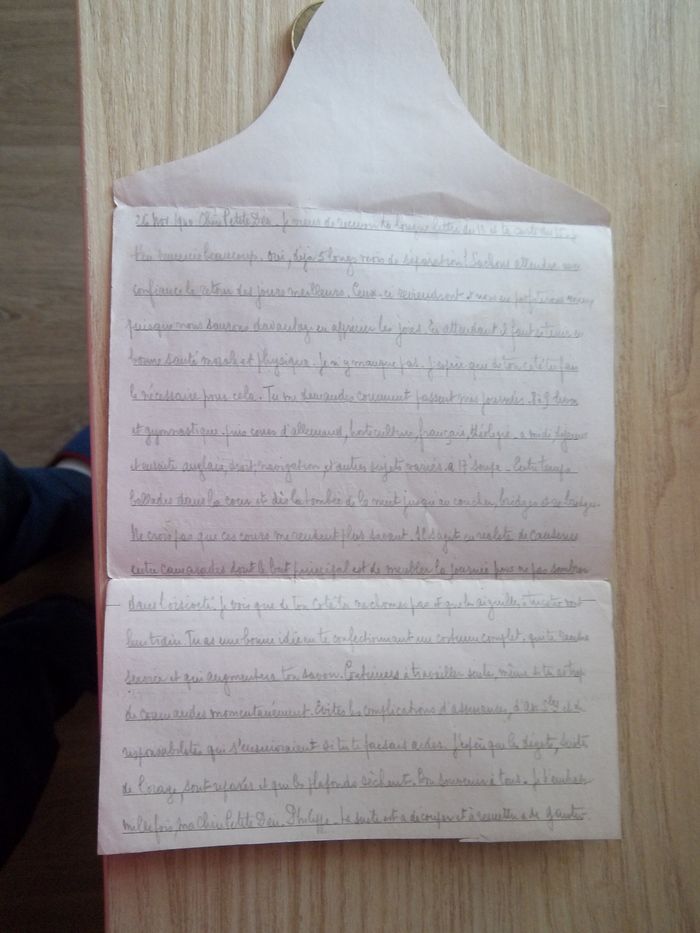 26 Nov 1940. Chère Petite Dea. Je viens de recevoir ta longue lettre du 11 et ta carte du 15 et
beaucoup. Oui, déjà 5 longs mois de séparation! Sachons attendre avec
confiance le retour des jours meilleurs. Ceux-ci reviendront et nous en profiterons mieux
puisque nous saurons davantage en apprécier les joies. En attendant il faut se tenir en
bonne santé morale et physique. Je n'y manque pas. J'espère que de ton côté tu fais
le nécessaire pour cela. Tu me demandes comment passent mes journées. 8 à 9 heures
et gymnastique. puis cours d'allemand, horticulture, français, théologie. à midi déjeuner
et ensuite anglais, navigation, et autres sujets variés. à 17h soupe. Entre temps
ballades dans la cour et dès la tombée de la nuit jusqu'au coucher, bridges et re bridges.
Ne crois pas que ces cours me rendent plus savant. Il s'agit en réalité de causeries
entre camarades dont le but principal est de meubler la journée pour ne pas sombrer
dans l'oisiveté. Je vois que de ton côté tu ne chômes pas et que les aiguilles à tricoter vont
leur train. Tu as une bonne idée en te confectionnant un costume complet, qui te rendra
service et qui augmentera ton savoir. Continues à travailler seule, même si tu as trop
de commandes momentanément. Evites les complications d'assurances, d'ass. et de
responsabilités qui s'ensuivraient si tu te faisais aider. J'espère que les dégâts, suite
de l'orage, sont réparés et que les plafonds sèchent. Bon souvenir à tous. Je t'embrasse
mille fois, ma Chère Petite Dea. Philippe. La suite est à découper et à remettre à de